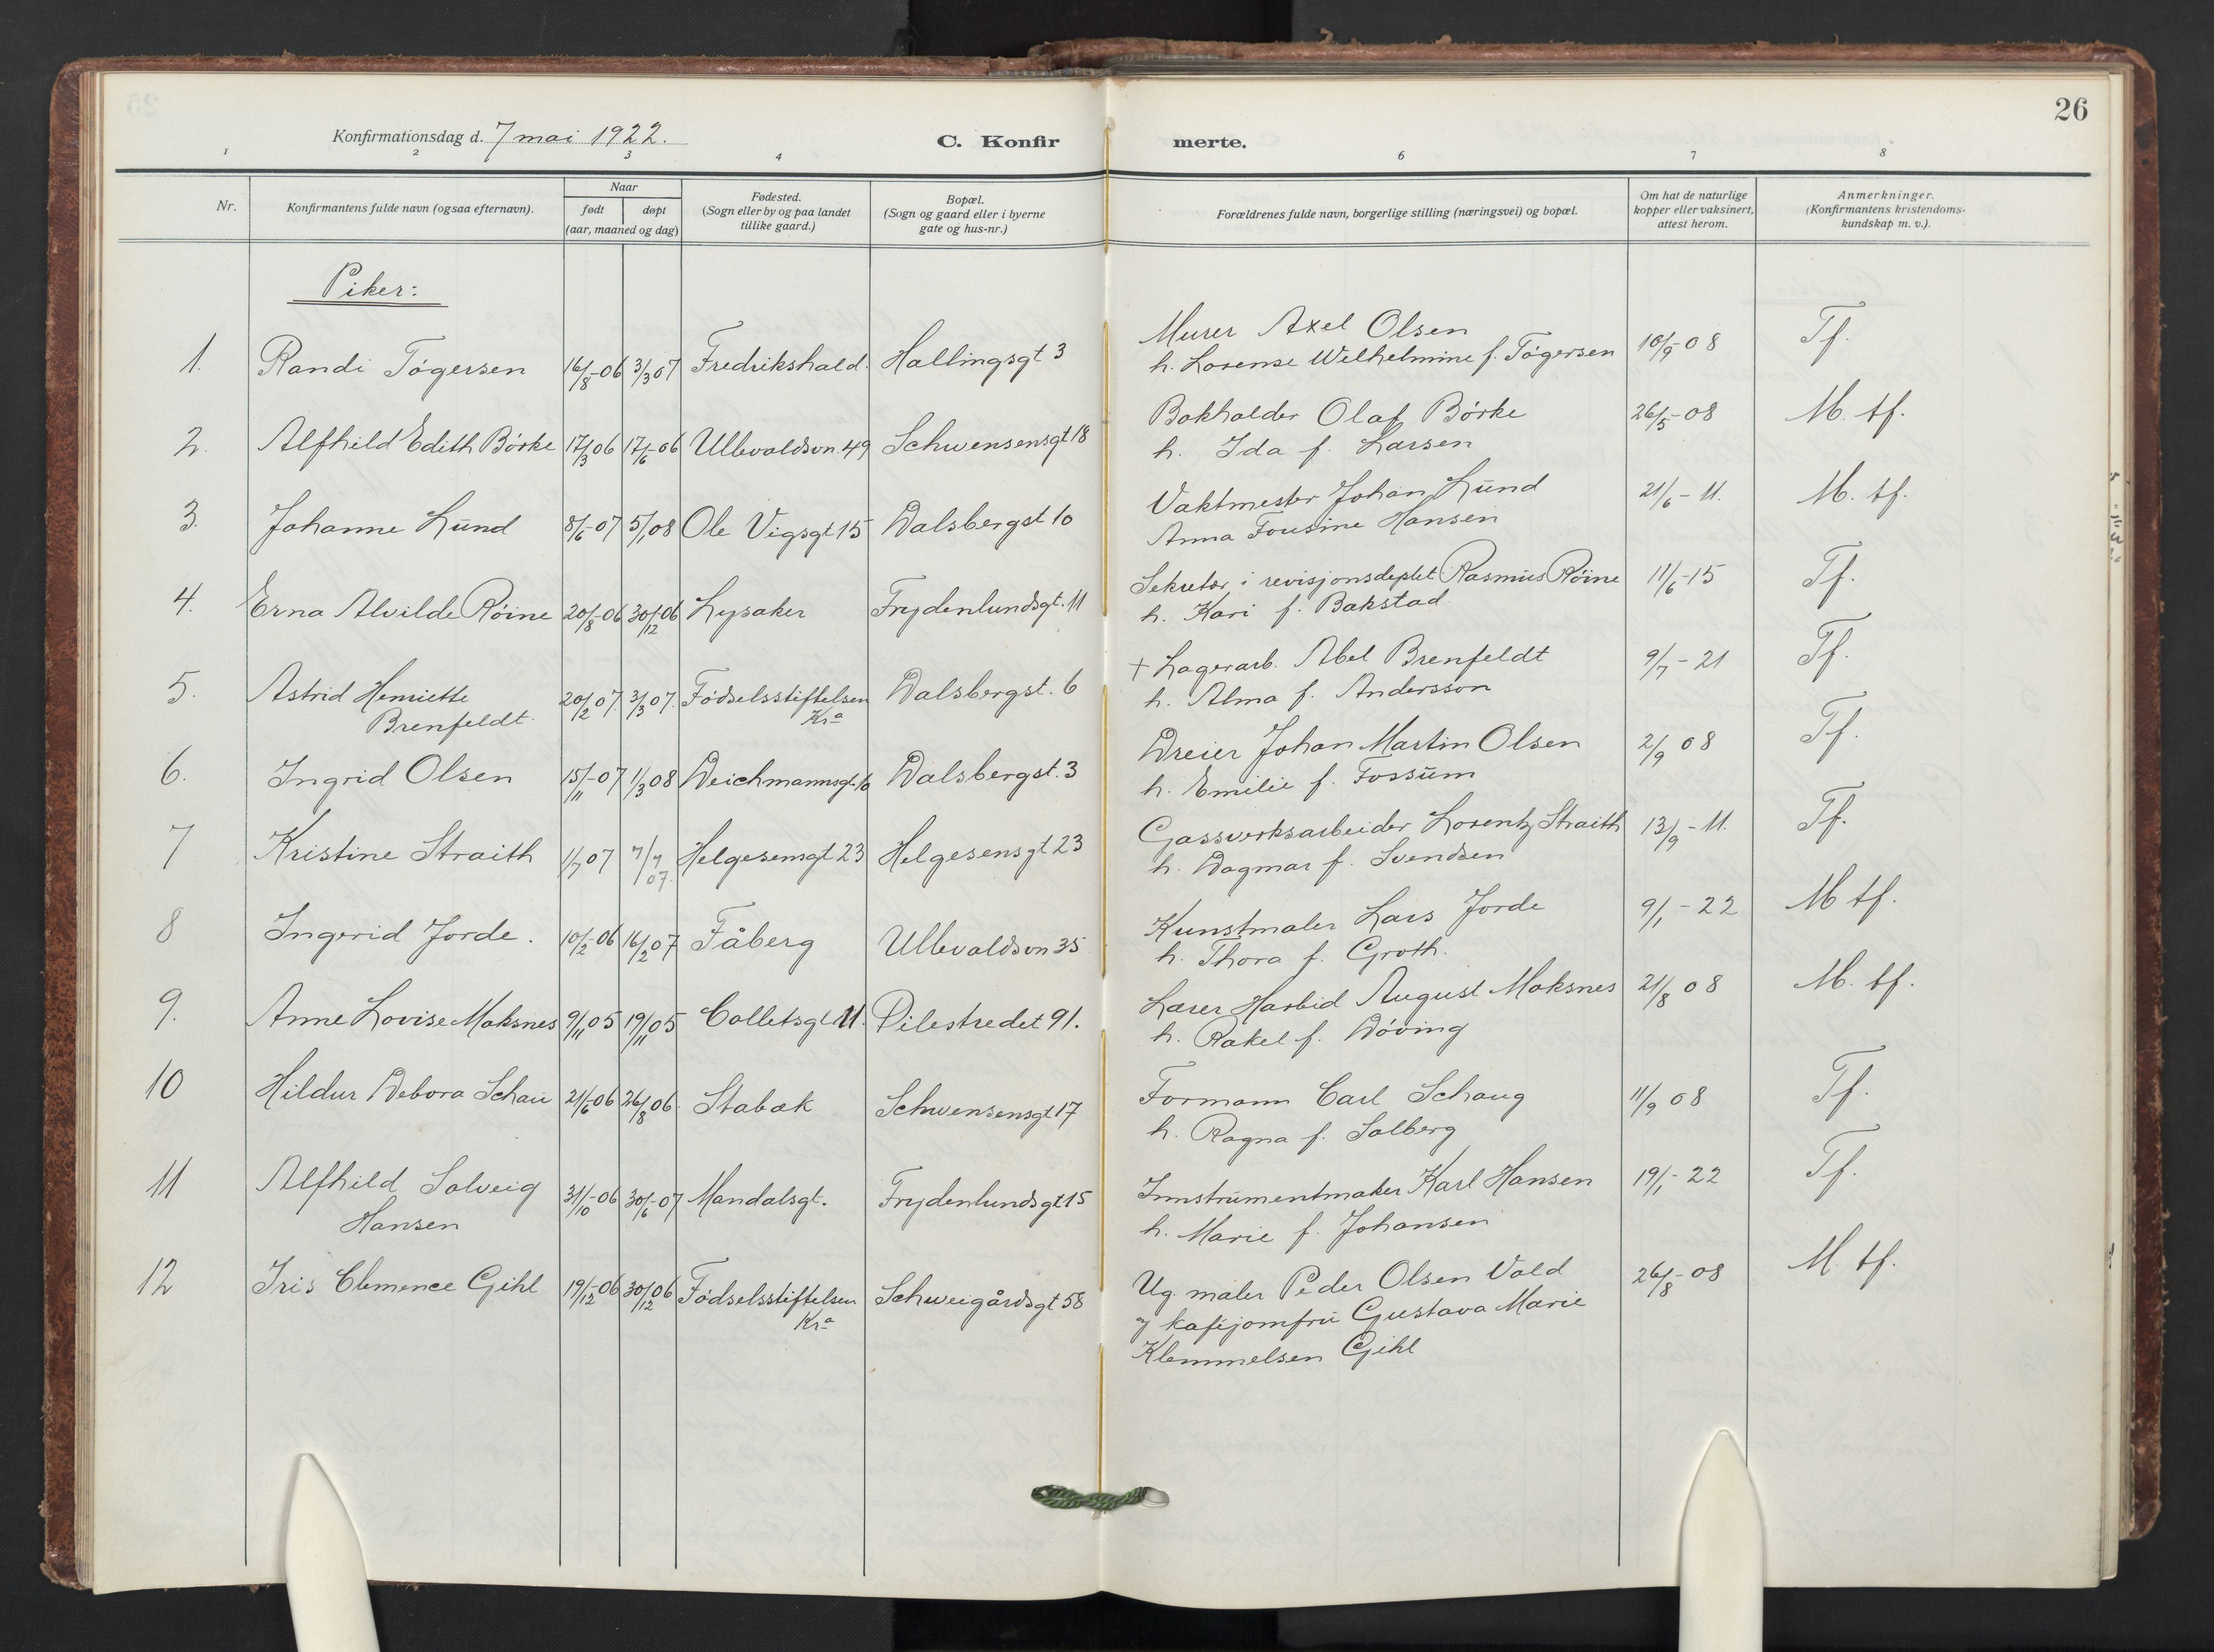 26
Konfirmationsdag d. 7 mai 1922.
C. Konfirmerte.
1 2 3 4 6 7 8
Nr.
Konfirmantens fulde navn (ogsaa efternavn).
Naar
født døpt
(aar, maaned og dag)
Fødested.
(Sogn eller by og paa landet
tillike gaard.)
Bopæl.
(Sogn og gaard eller i byerne
gate og hus-nr.)
Forældrenes fulde navn, borgerlige stilling (næringsvei) og bopæl.
Om hat de naturlige
kopper eller vaksinert,
attest herom.
Anmerkninger.
(Konfirmantens kristendoms-
kundskap m. v.).
Piker:
1. Randi Tógersen 16/8-06 3/3 07 Fredrikshald. Hallingsgt 3
Murer Axel Olsen
h. Lorense Wilhelmine f. Tógersen 10/9-08 Tf.
2. Alfhild Edith Bórke 17/3 06 17/6-06 Ullevoldsvn. 49 Schwensensgt 18
Bokholder Olaf Bórke
h. Ida f. Larsen 26/5-08 M. tf.
3. Johanne Lund 8/6-07 5/1 08 Ole Vigsgt 15 Dalsbergst 10
Vaktmester Johan Lund
Anna Fousine Hansen 21/6-11. M. tf.
4. Erna Alvilde Róine 20/8-06 30/12-06 Lysaker Frydenlundsgt. 11
Sekretær i revisjonsdeptet Rasmus Róine
h. Kari f. Bakstad 11/6-15 Tf.
5. Astrid Henriette
Brenfeldt. 20/2 07. 3/3 07. Fódselsstiftelsen
Kra Dalsbergst. 6
+ Lagerarb. Abel Brenfeldt
h. Alma f. Andersson 9/7-21 Tf.
6. Ingrid Olsen 15/11-07 1/3 08 Deichmannsgt. 10 Dalsbergst. 3
Dreier Johan Martin Olsen
h. Emilie f. Fossum 2/9 08 Tf.
7 Kristine Straith 1/7 07 7/7 07. Helgesensgt 23 Helgesensgt 23
Gassverksarbeider Lorentz Straith
h. Dagmar f. Svendsen 13/9-11. Tf.
8 Ingerid Jorde. 10/2-06 16/2 07 Fåberg Ullevoldsvn 35
Kunstmaler Lars Jorde
h. Thora f. Groth. 9/1-22 M tf.
9. Anne Lovise Moksnes 9/11 05 19/11 05 Colletsgt 11. Pilestredet 91.
Lærer Harbid August Moksnes
h. Rakel f. Dóving 21/8 08 M. tf.
10 Hildur Debora Schau 21/6-06 26/8 06. Stabæk Schwensensgt 17
Formann Carl Schaug
h. Ragna f. Solberg 11/9 08 Tf.
11 Alfhild Solveig
Hansen 31/10-06 30/6-07 Mandalsgt. Frydenlundsgt 15
Innstrumentmaker Karl Hansen
h. Marie f. Johansen 19/1-22 Tf.
12 Iris Clemence Gihl 19/12-06 30/12 06 Fódselsstiftelsen
Kra Schweigårdsgt 58
Ug. maler Peder Olsen Vold
og kaféjomfru Gustava Marie
Klemmelsen Gihl 26/8-08 M. tf.